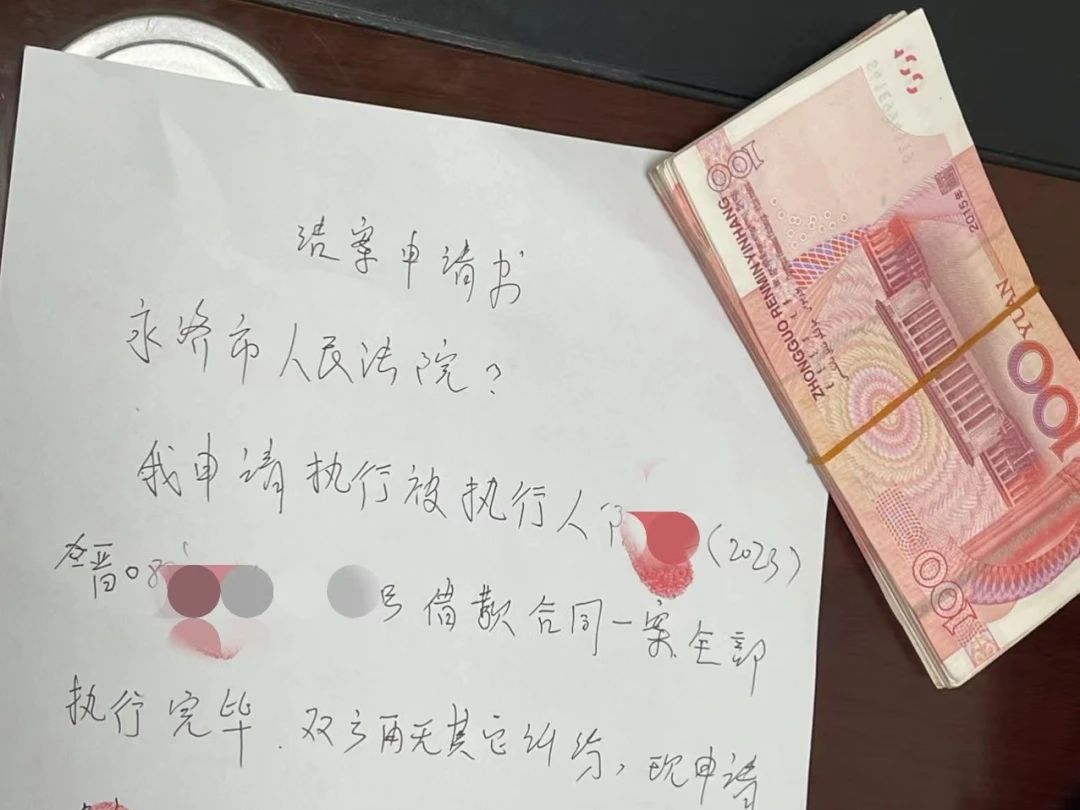 结案申请书
永济市人民法院?
我申请执行被执行人 (2023)
晋08 号借款合同一案全部
执行完毕.双方再无其它纠纷,现申请
100
2015年
ZHONGGUO RENMIN YINHANG
YUAN
100
100